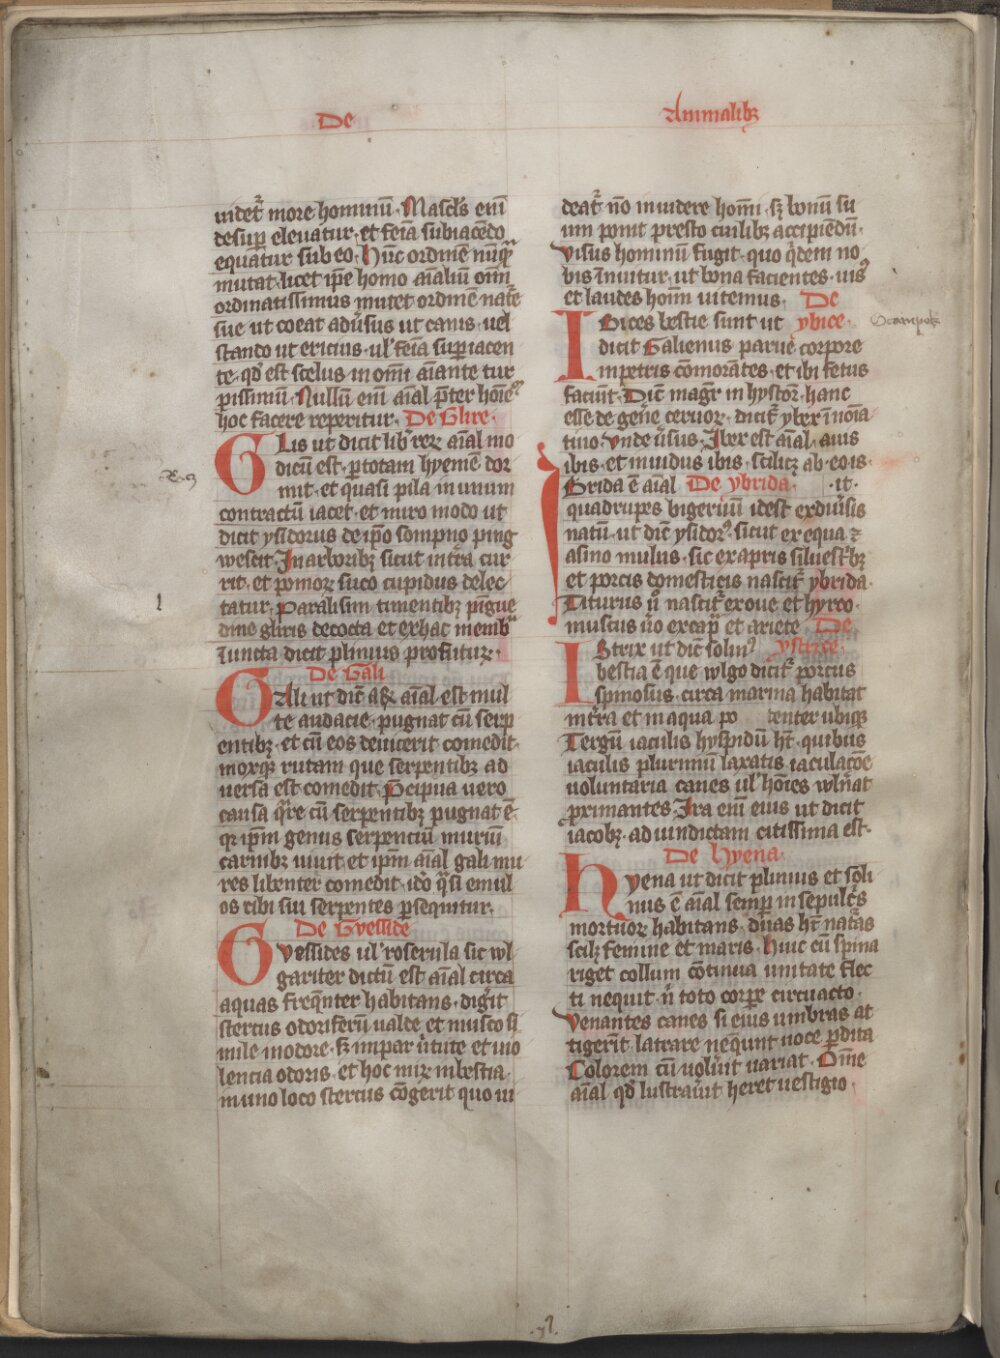 De
Animalibꝫ
uidet᷑ more hominū. Mascl's enī
desup eleuatur. et feīa subiacēdo
equatur sub eo. Hūc ordinē nūq̄
mutat. licet ip̄e homo aīaliū om̄
ordinatissimus mutet ordinē nat᷑e
sue ut coeat adūsus ut canis. uel
stando ut ericius. ul' feīa sup iacen
te. qd' est scelus in om̄i aīante tur
pissimū. Nullū enī aīal p̄ter hoīeꝫ
hoc facere reperitur. De Glire.
Glis ut dicit lib' reꝝ aīal mo
dicū est. ꝑ totam hyemē dor
mit. et quasi pila in unum
contractū iacet. et miro modo ut
dicit ysidorus de ip̄o sompno ping
wescit. In arboribꝫ sicut int᷑a cur
rit. et pomoꝝ suco cupidus delec
tatur. Paralisim timentibꝫ pīgue
dine gliris decocta et ex hac memb'
īuncta dicit plinius profitur.
De Gali
Gali ut dic̄ aꝝ aīal est mul
te audacie. pugnat cū serp
entibꝫ. et cū eos deuicerit comedit.
moxqꝫ rutam que serpentibꝫ ad
uersa est comedit. P̄cipua uero
causa q̄re cū serpentibꝫ pugnat ē.
qꝛ ip̄m genus serpenciū muriū
carnibꝫ uiuit et ip̄m aīal gali mu
res libenter comedit. idō q̄si emul
os cibi sui serpentes ꝑsequitur.
De Guesside
Guessides ul' roserula sic wl
gariter dictū est aīal circa
aquas freq̄nter habitans. dig̃it
stercus odoriferū ualde et musco si
mile in odore. sꝫ impar v̄tute et uio
lencia odoris. et hoc miꝝ in bestia
in uno loco stercus cōgerit quo ui
deat᷑ nō inuidere hoīm. sꝫ bonū su
um ponit presto cuilibꝫ accipiēdū.
Visus hominū fugit. quo q̄dem no
bis īnuitur. ut bona facientes. uisꝰ
et laudes hoīm uitemus. De
Ibices bestie sunt ut ybice.
dicit Galienus parue corpore
in petris comorātes. et ibi fetus
faciūt. Dic̄ magr̄ in hystor̄. hanc
esse de geñe ceruoꝝ. dicit᷑ ybex ī noīa
tiuo. Vnde ūsus. Ibex est aīal. auis
ibis. et inuidus ibis. scilicꝫ ab. eo. is.
Ibrida ē aīal De ybrida. .it.
quadrupes bigeniuū idest ex diūsis
natū. ut dic̄ ysidorꝰ. sicut ex equa ⁊
asino mulus. sic ex apris siluest᷑bꝫ
et porcis domesticis nascit᷑ ybrida.
Titurus ū nascit᷑ ex oue et hyrco.
muscus ūo ex cap̄ et ariete De
Istrix ut dic̄ solinꝰ ystrice.
bestia ē que wlgo dicit᷑ porcus
spinosus. circa marina habitat
in t᷑ra et in aqua po tenter ubiqꝫ
Tergū iaculis hyspidū hȝ. quibus
iaculis plurimū laxatis iaculacōe
uoluntaria canes ul' hoīes wln̄at
ꝓximantes. Ira enī eius ut dicit
iacobꝫ. ad uindictam citissima est.
De hyena.
Hyena ut dicit plinius et soli
nus ē aīal semꝑ in sepulcs̄
mortuoꝝ habitans. duas hȝ nat᷑as
scilꝫ femine et maris. Huic cū spina
riget collum cōtinua unitate flec
ti nequit n̄ toto corꝑe circuacto.
Venantes canes si eius umbras at
tigerīt latrare neq̄unt uoce ꝑdita
Colorem cū uolūit uariat. Om̄e
aīal qd' lustraūit heret uestigio.